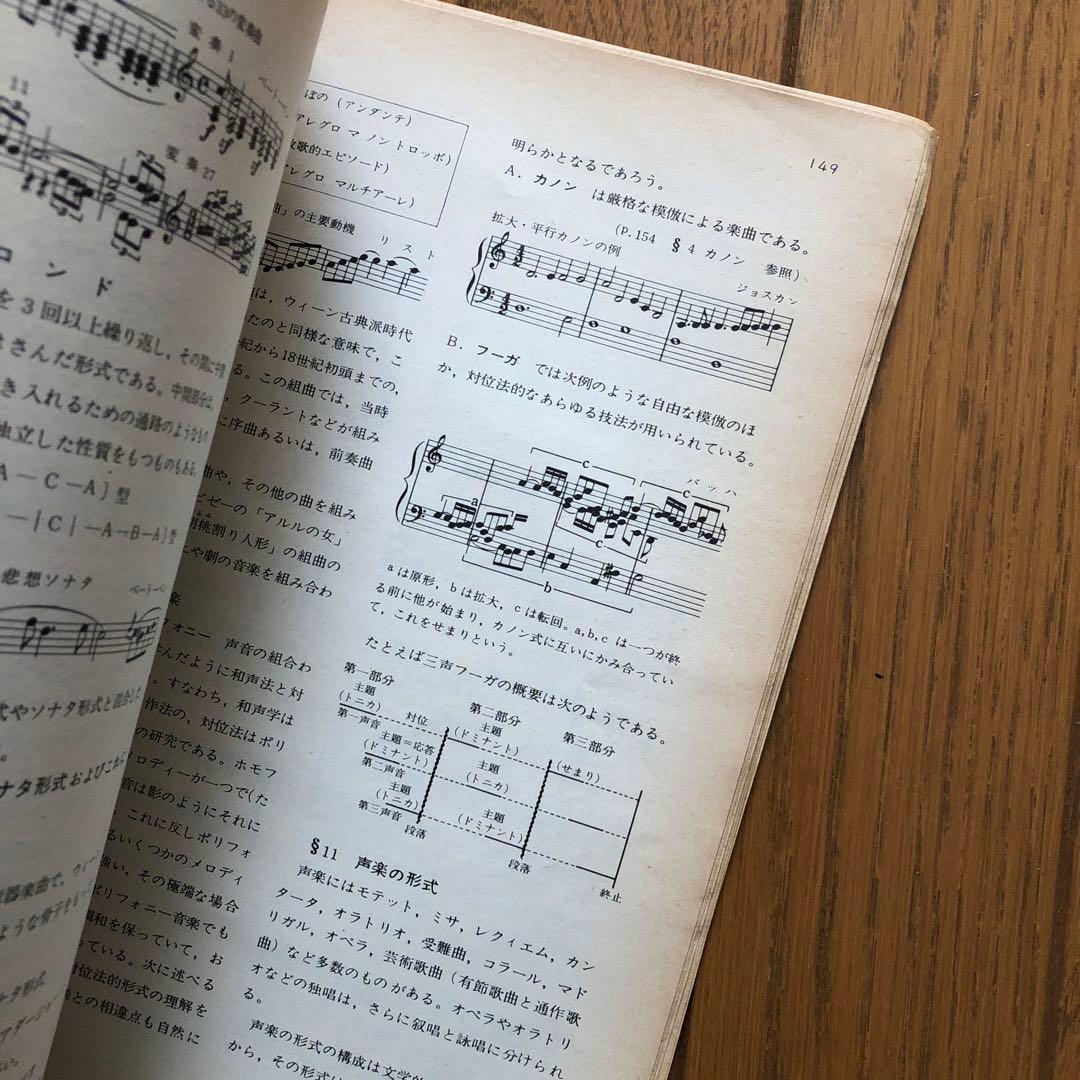 変奏曲
変奏1
ベートー
11
変奏27
ロンド
を3回以上繰り返し，その間に
さんだ形式である。中間部分は，
き入れるための通路のようなもの
独立した性質をもつものもある。
A－C－A〕型
－|C|－A－B－A〕型
悲想ソナタ
ベートーベン
式やソナタ形式と混合した
ナタ形式およびこれに
器楽曲で，
ような
ナタ形式
ぼの（アンダンテ）
アレグロ マ ノン トロッポ）
牧歌的エピソード）
アレグロ マルチアーレ）
曲」の主要動機
リスト
は，ウィーン古典派時代
たのと同様な意味で，こ
紀から18世紀初頭までの，
る。この組曲では，当時
，クーラントなどが組み
に序曲あるいは，前奏曲
曲や，その他の曲を組み
ビゼーの「アルルの女」
胡桃割り人形」の組曲の
や劇の音楽を組み合わ
楽
フォニー　声音の組合わ
んだように和声法と対
。すなわち，和声学は
作法の，対位法はポリ
の研究である。ホモフ
メロディーが一つで（た
音は影のようにそれに
，これに反しポリフォ
るいくつかのメロディ
強い，その極端な場合
ポリフォニー音楽でも
調和を保っていて，お
っている。次に述べる
対位法的形式の理解を
との相違点も自然に
149
明らかとなるであろう。
A．カノン　は厳格な模倣による楽曲である。
(P.154　§4　カノン　参照)
拡大・平行カノンの例
ジョスカン
B．フーガ　では次例のような自由な模倣のほ
か，対位法的なあらゆる技法が用いられている。
バッハ
c
c
a
c
b
aは原形，bは拡大，cは転回。a,b,cは一つが終
る前に他が始まり，カノン式に互いにかみ合ってい
て，これをせまりという。
たとえば三声フーガの概要は次のようである。
第一部分
第二部分
第三部分
主題
(トニカ)
対位
主題
(ドミナント)
(せまり)
第一声音
主題＝応答
(ドミナント)
主題
(トニカ)
第二声音
主題
(トニカ)
主題
(ドミナント)
第三声音
段落
段落
終止
§11　声楽の形式
声楽にはモテット，ミサ，レクィエム，カン
タータ，オラトリオ，受難曲，コラール，マド
リガル，オペラ，芸術歌曲（有節歌曲と通作歌
曲）など多数のものがある。オペラやオラトリ
オなどの独唱は，さらに叙唱と詠唱に分けられ
る。
声楽の形式の構成は文学的
から，その形式は